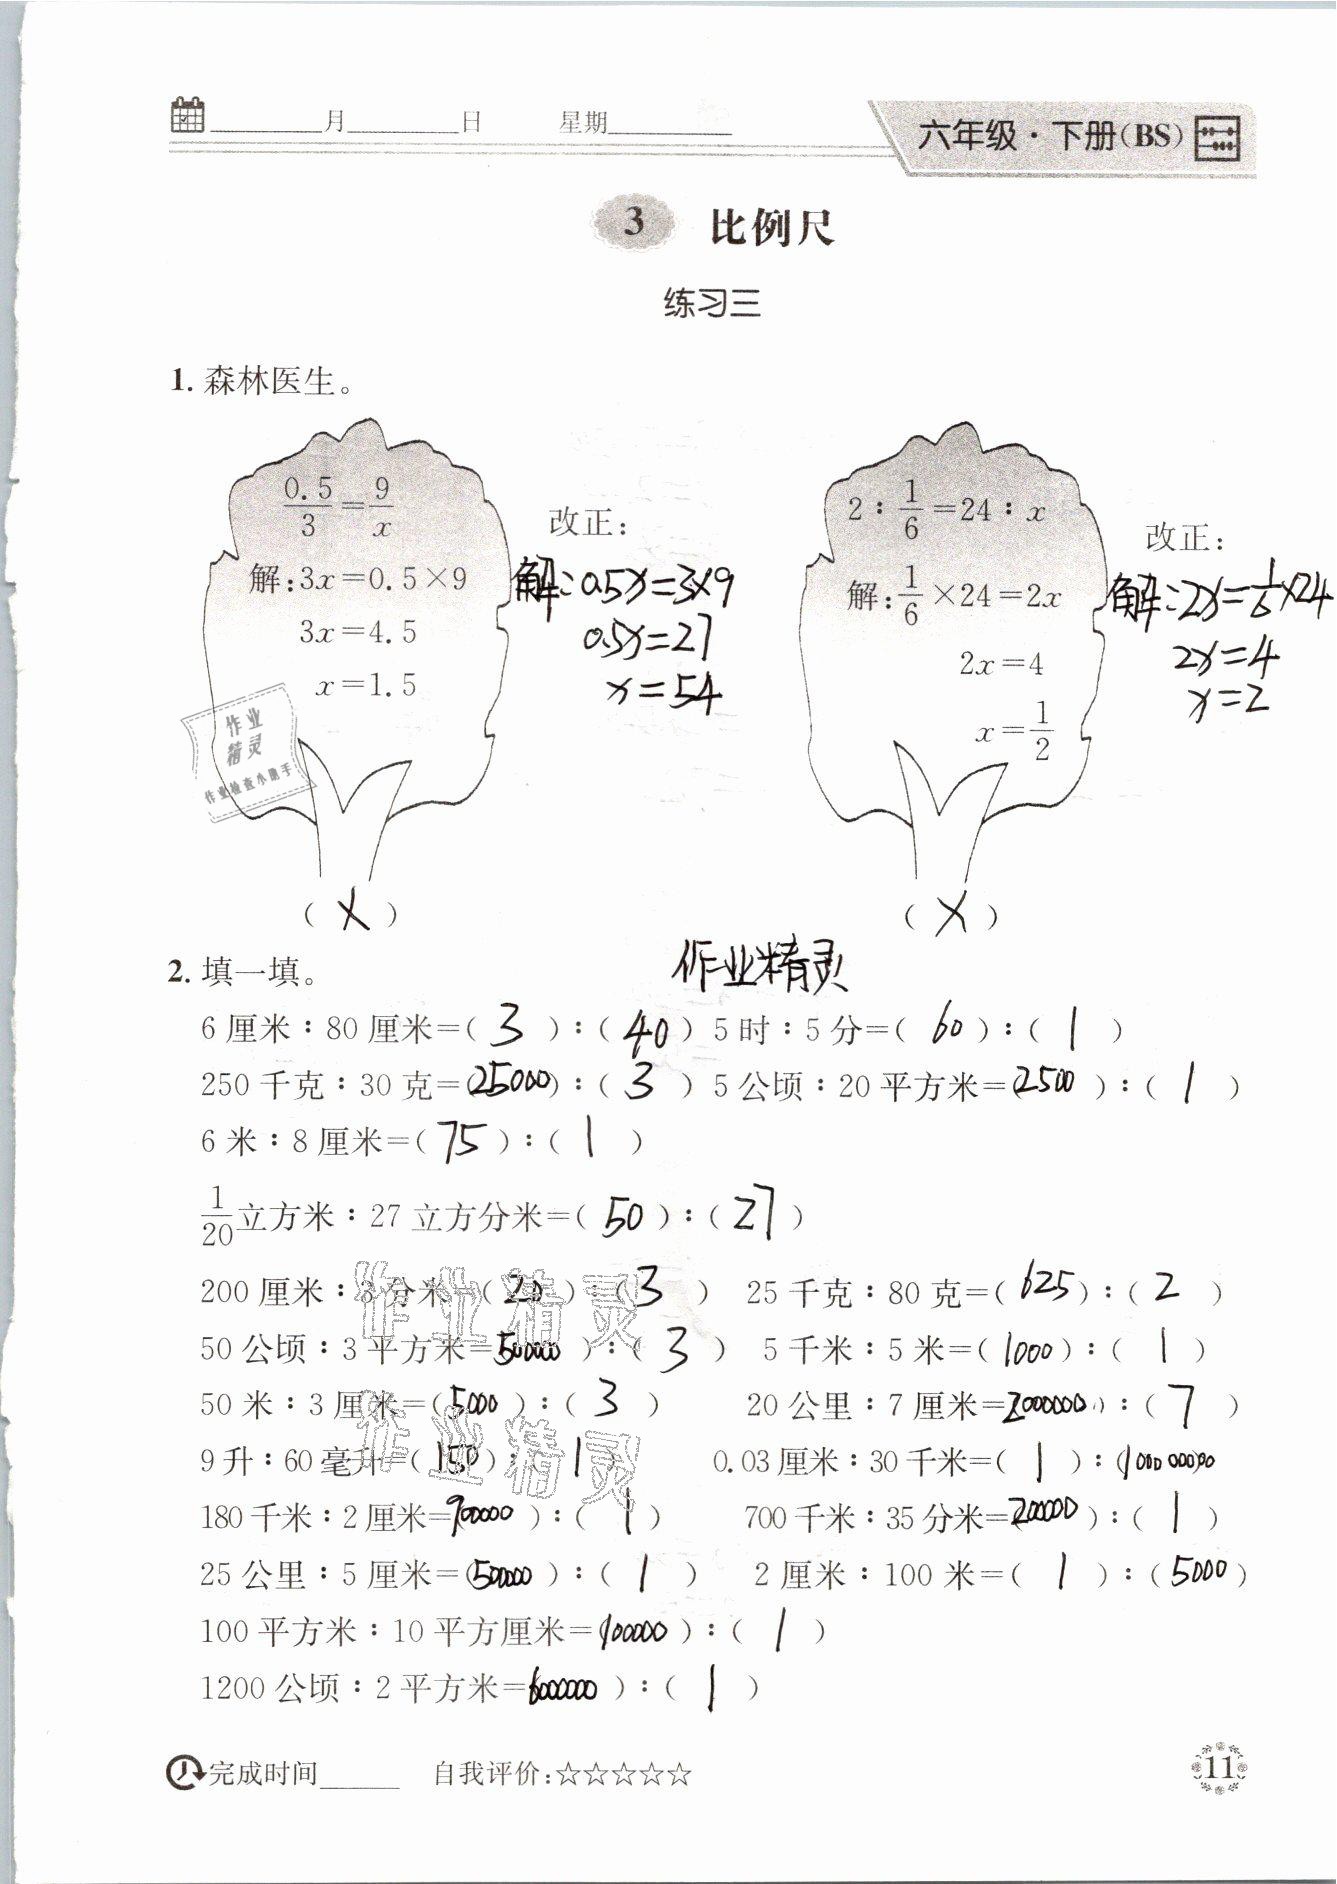 月 日 星期
六年级·下册(BS)
3 比例尺
练习三
1. 森林医生。
0.5/3=9/x
解:3x=0.5×9
3x=4.5
x=1.5
改正:
解:0.5x=3×9
0.5x=27
x=54
(×)
2∶1/6=24∶x
解:1/6×24=2x
2x=4
x=1/2
改正:
解:2x=1/6×24
2x=4
x=2
(×)
作业精灵
作业检查小助手
作业精灵
2. 填一填。
6厘米∶80厘米=(3)∶(40) 5时∶5分=(60)∶(1)
250千克∶30克=(25000)∶(3) 5公顷∶20平方米=(2500)∶(1)
6米∶8厘米=(75)∶(1)
1/20立方米∶27立方分米=(50)∶(27)
200厘米∶3分米=(20)∶(3) 25千克∶80克=(625)∶(2)
50公顷∶3平方米=(500000)∶(3) 5千米∶5米=(1000)∶(1)
50米∶3厘米=(5000)∶(3) 20公里∶7厘米=(2000000)∶(7)
9升∶60毫升=(150)∶(1) 0.03厘米∶30千米=(1)∶(100000000)
180千米∶2厘米=(9000000)∶(1) 700千米∶35分米=(200000)∶(1)
25公里∶5厘米=(500000)∶(1) 2厘米∶100米=(1)∶(5000)
100平方米∶10平方厘米=(100000)∶(1)
1200公顷∶2平方米=(6000000)∶(1)
作业精灵
作业精灵
完成时间 自我评价:☆☆☆☆☆
11